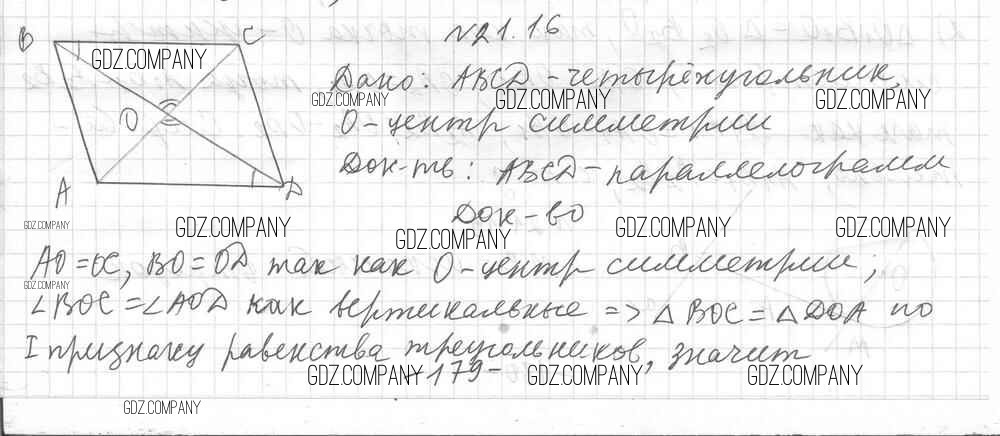 N21.16
B C
GDZ.COMPANY
Дано: ABCD - четырёхугольник,
GDZ.COMPANY GDZ.COMPANY GDZ.COMPANY
O
O - центр симметрии
Док-ть: ABCD - параллелограмм
A D
Док-во
GDZ.COMPANY GDZ.COMPANY GDZ.COMPANY GDZ.COMPANY GDZ.COMPANY
AO = OC, BO = OD так как O - центр симметрии;
GDZ.COMPANY
∠BOC = ∠AOD как вертикальные => △ BOC = △ DOA по
I признаку равенства треугольников, значит
-179-
GDZ.COMPANY GDZ.COMPANY GDZ.COMPANY
GDZ.COMPANY